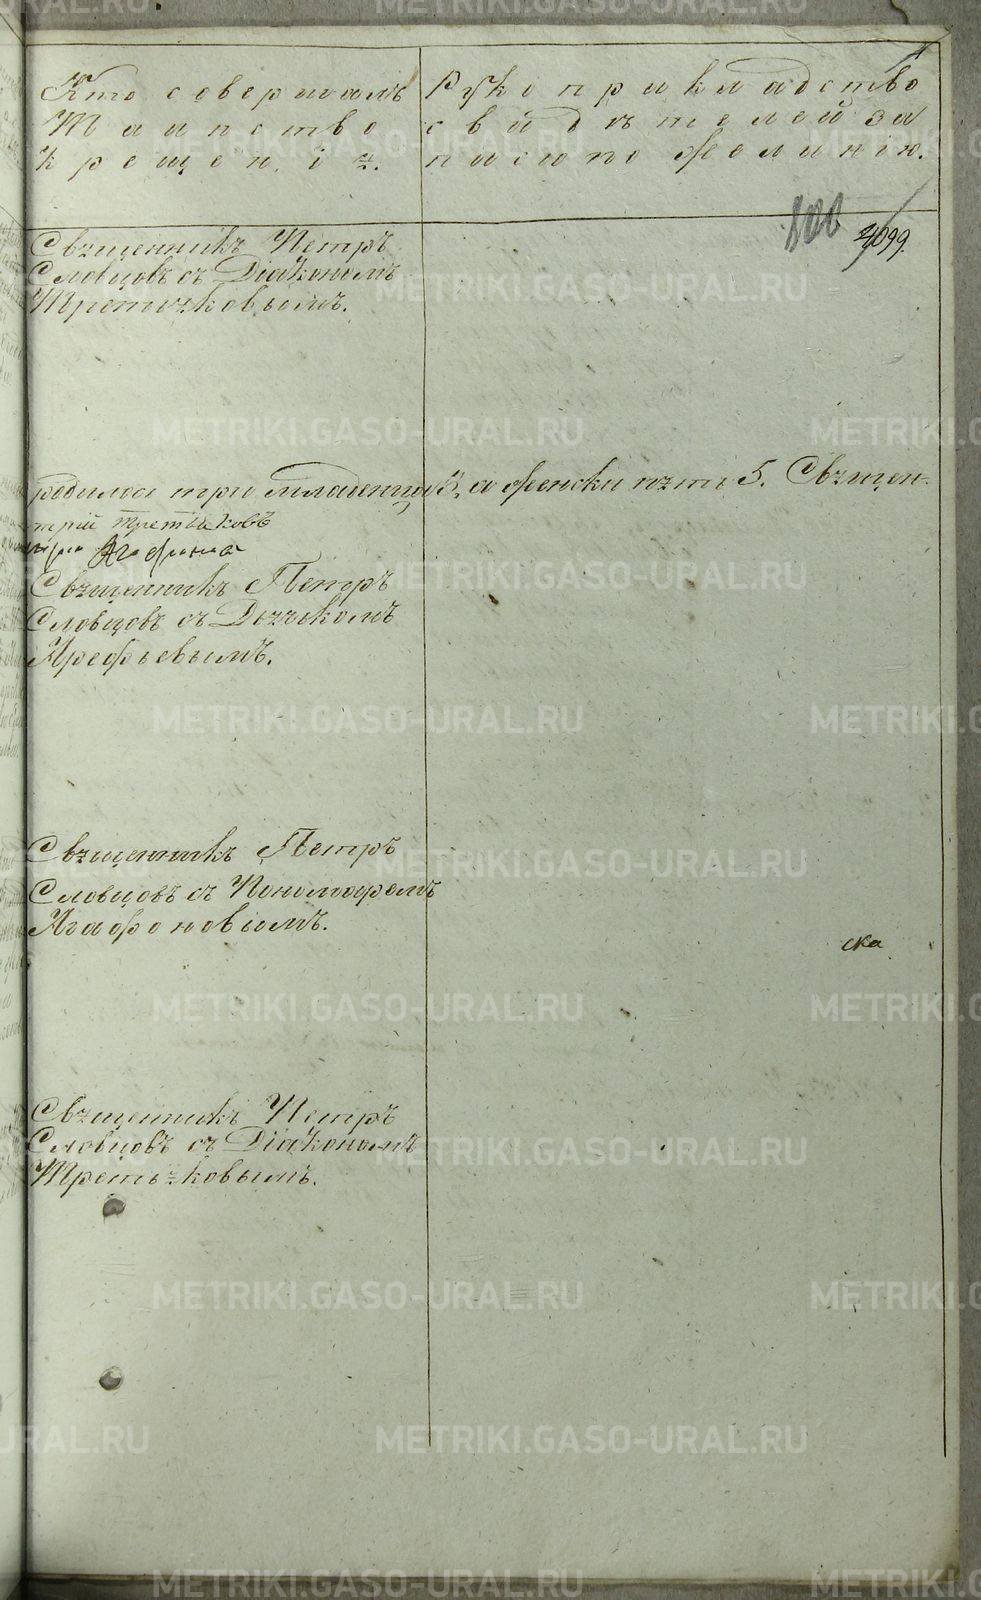 Кто совершалъ
Таинство
крещенія.
Рукоприкладство
свидѣтелей за
писью по желанію.
100
1099.
Священникъ Петръ
Словцовъ съ Діакономъ
Третьяковымъ.
родилось три младенца 3, а женска пять 5. Священ-
трій Третьяковъ
Священникъ Петръ
Словцовъ съ Дьячькомъ
Арефьевымъ.
Священникъ Петръ
Словцовъ съ Пономаремъ
Агафоновымъ.
ска
Священникъ Петръ
Словцовъ съ Діакономъ
Третьяковымъ.
METRIKI.GASO-URAL.RU